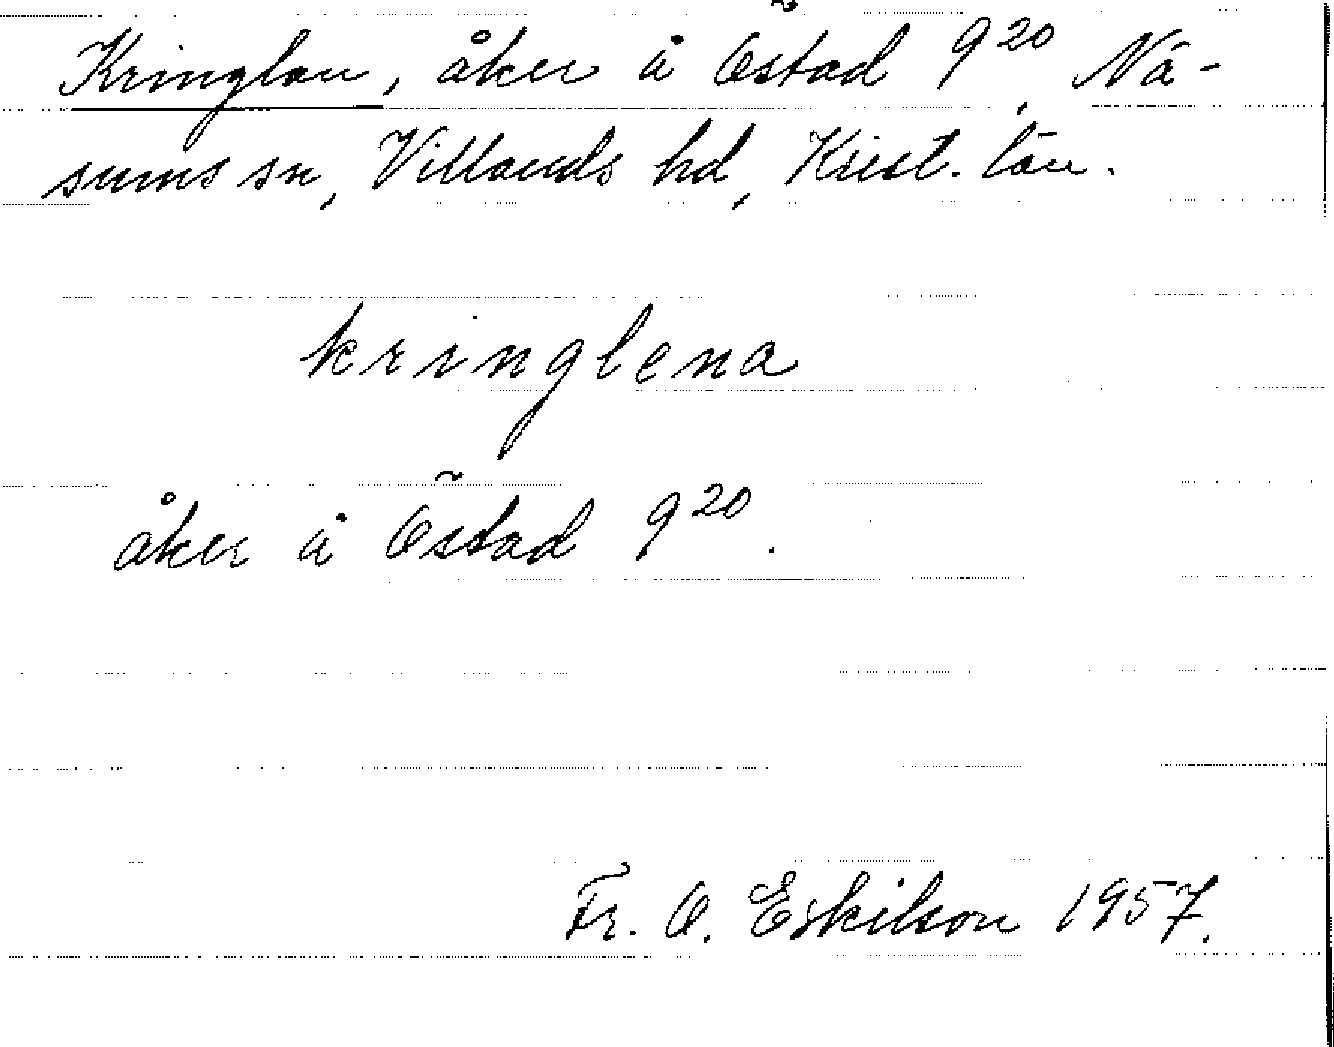 Kringlan, åker å Östad 9²⁰, Nä-
sums sn, Villands hd, Krist. län.
kringlena
åker å Östad 9²⁰.
Fr. O. Eskilson 1957.